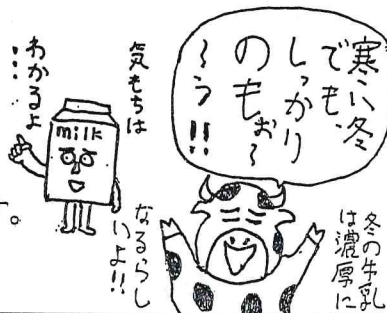 寒い冬
でも、
しっかり
のもぉ〜
〜う!!
冬の牛乳
は濃厚に
なるらし
いよ!!
気もちは
わかるよ
…
milk
。